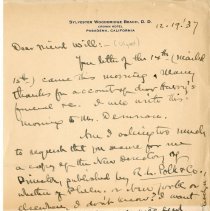 SYLVESTER WOODBRIDGE BEACH, D. D.
CROWN HOTEL
PASADENA, CALIFORNIA
12-19-37
Dear Friend Will:-
Your letter of the 14th (mailed
15th) came this morning. Many
thanks for account of dear Harry's
funeral &c. I will write this
morning to Mr.
Am I asking too much
to request that you secure for me
a copy of the New Directory of
published by R. L. Polk & Co.
whether of Phila. or New York or
elsewhere, I don't know? I want